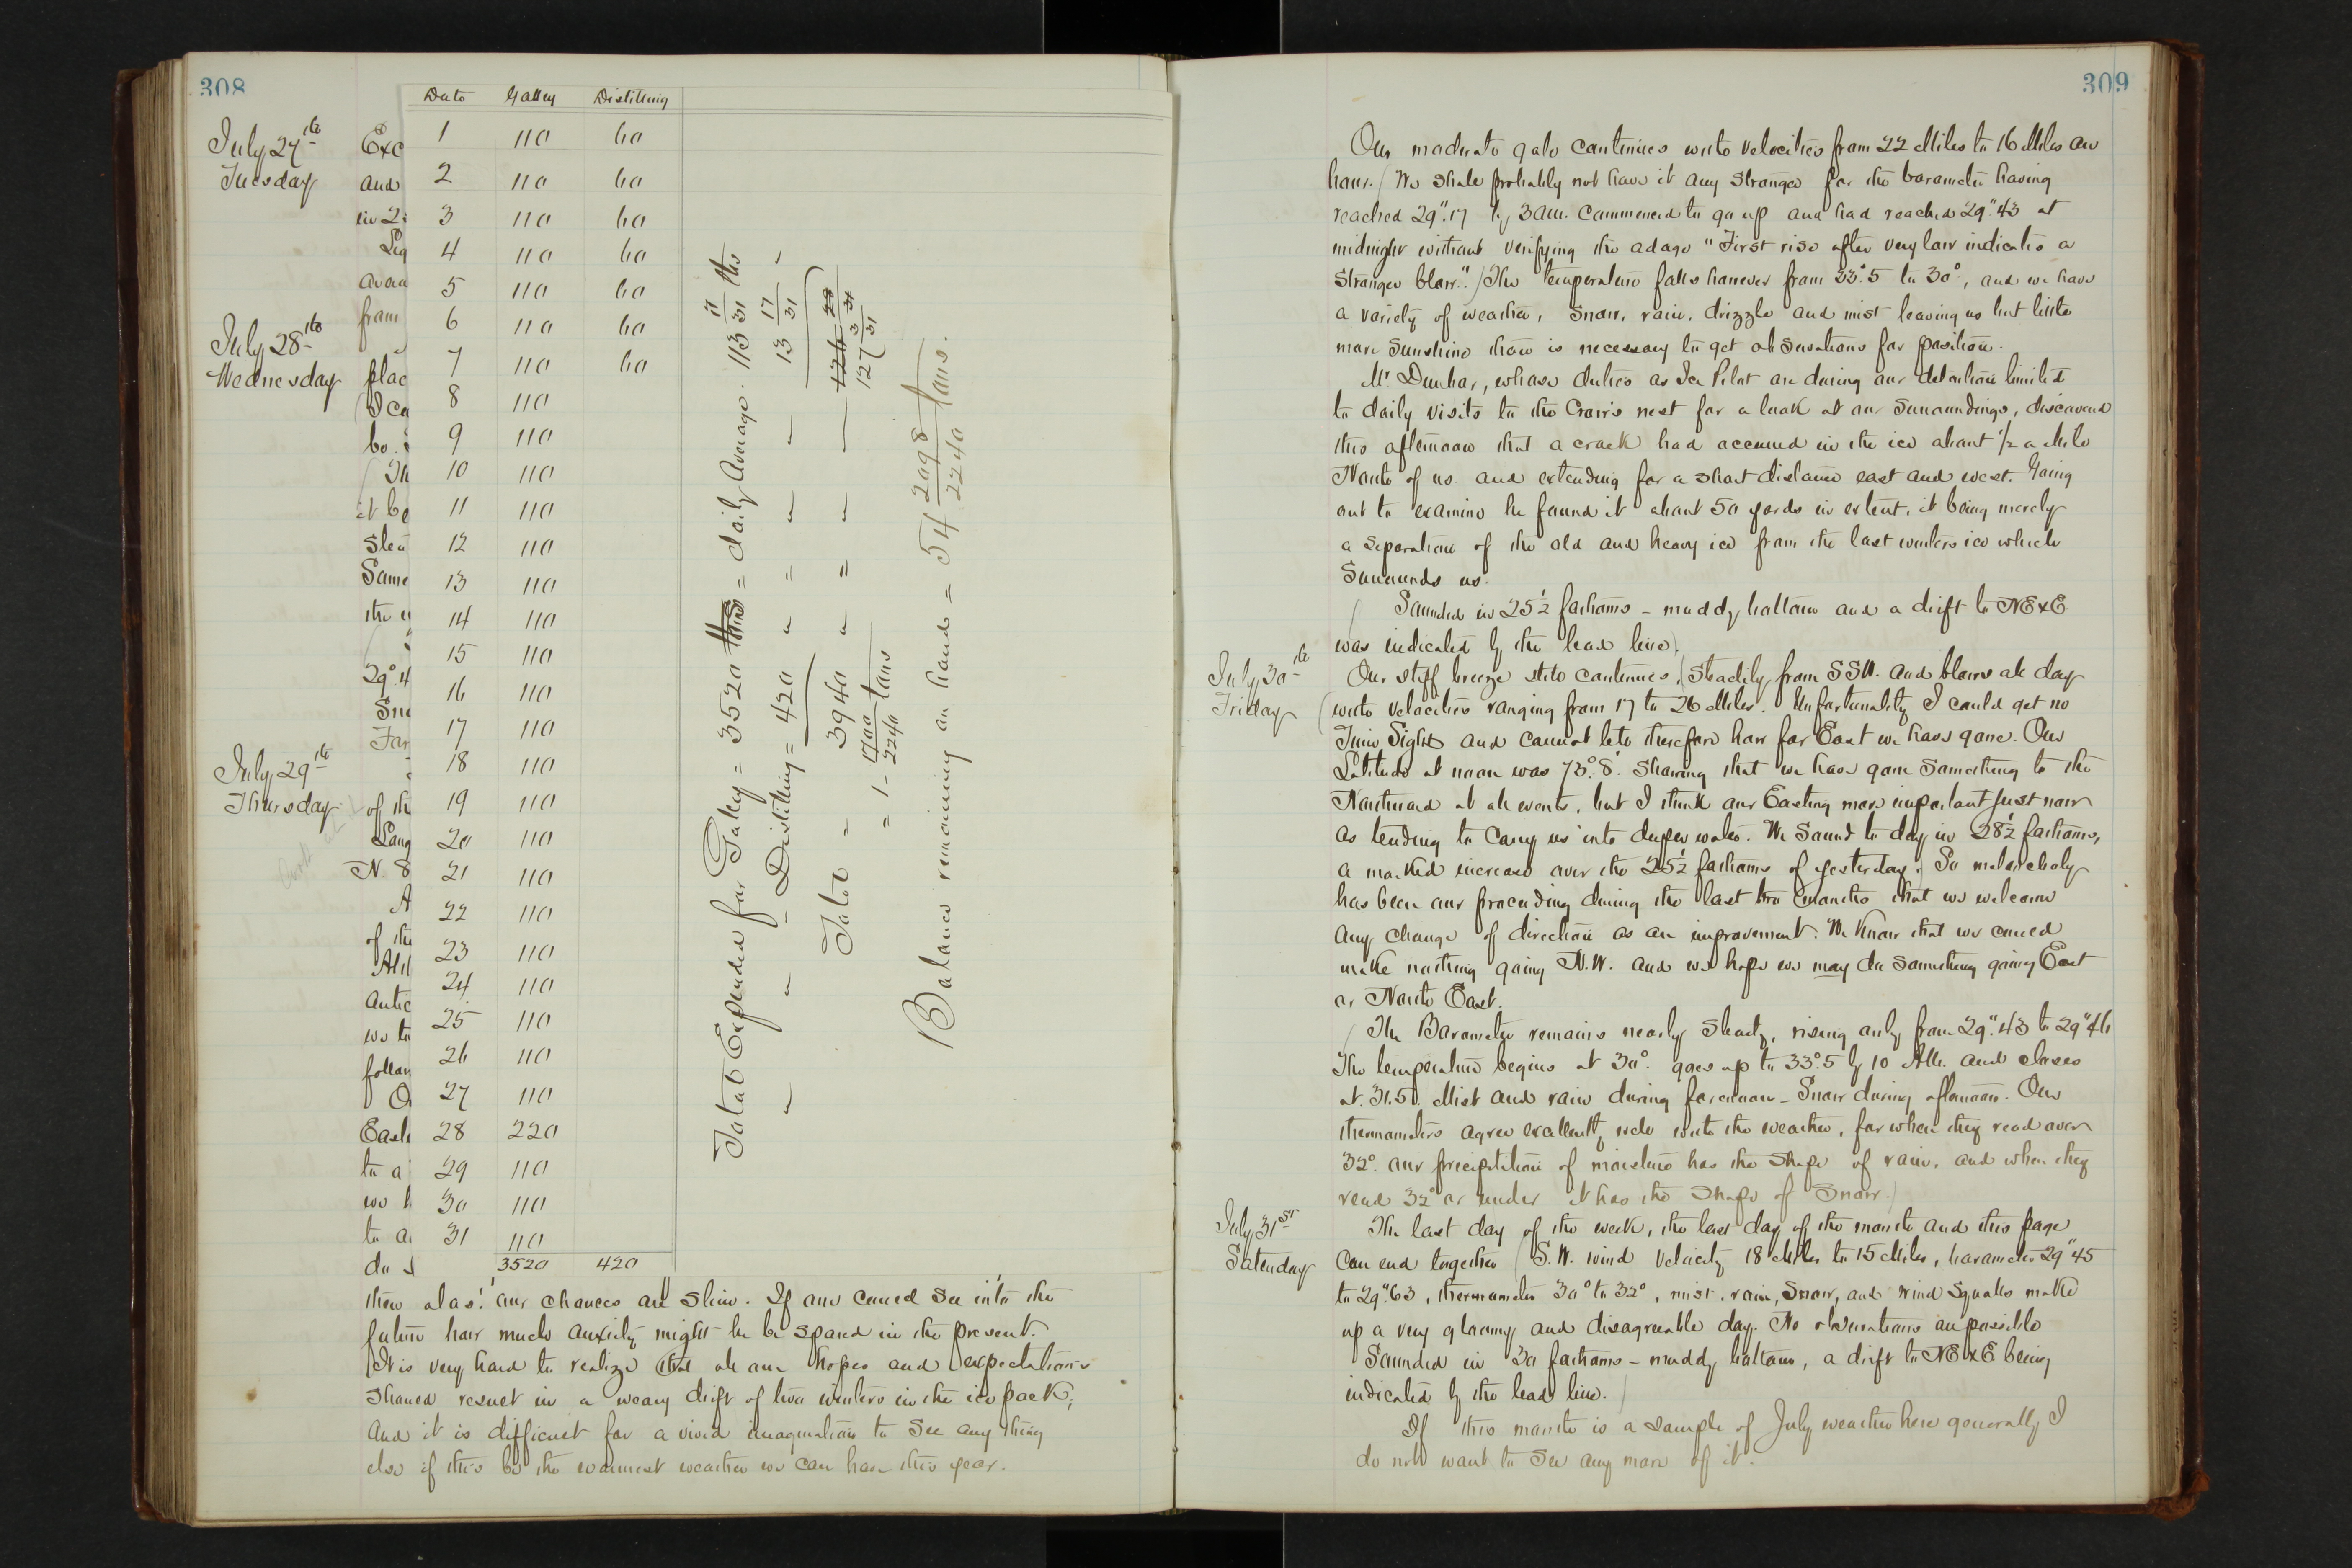 308
July 27th
Tuesday
July 28th
Wednesday
July 29th
Thursday
Exc
and
in 2
Lig
avera
from
plac
(I ca
be
(Th
it be
Slea
Some
the
29°.4
Sno
For
of th
Long
N. 8
A
of the
Alth
antic
we to
follow
O
East
to a
we h
to a
do
Date Galley Distilling
1 110 60
2 110 60
3 110 60
4 110 60
5 110 60
6 110 60
7 110 60
8 110
9 110
10 110
11 110
12 110
13 110
14 110
15 110
16 110
17 110
18 110
19 110
20 110
21 110
22 110
23 110
24 110
25 110
26 110
27 110
28 220
29 110
30 110
31 110
3520 420
Total Expended for Galley = 3520 lbs = daily average. 113 17/31 lbs
" " " Distilling = 420 " = " " 13 17/31 "
Total = 3940 " = " " 127 3/31
= 1 - 1700/2240 tons
Balance remaining on hand = 54 2098/2240 tons.
then alas! our chances are slim. If one could see into the
future how much anxiety might he be spared in the present.
It is very hard to realize that all our hopes and expectations
should result in a weary drift of two winters in the ice pack;
and it is difficult for a vivid imagination to see any thing
else if this be the warmest weather we can have this year.
309
Our moderate gale continues with velocities from 22 Miles to 16 Miles an
hour. (We shall probably not have it any stronger for the barometer having
reached 29".17 by 3 am. commenced to go up and had reached 29".43 at
midnight without verifying the adage "First rise after very low indicates a
stronger blow.") The temperature falls however from 33°.5 to 30°, and we have
a variety of weather, snow, rain, drizzle and mist leaving us but little
more sunshine than is necessary to get observations for position.
Mr. Dunbar, whose duties as Ice Pilot are during our detention limited
to daily visits to the Crow's nest for a look at our surroundings, discovered
this afternoon that a crack had occurred in the ice about 1/2 a Mile
North of us and extending for a short distance east and west. Going
out to examine he found it about 50 yards in extent, it being merely
a separation of the old and heavy ice from the last winters ice which
surrounds us.
(Sounded in 25½ fathoms – muddy bottom and a drift to NExE
was indicated by the lead line).
July 30th
Friday
Our stiff breeze still continues, (steadily from SSW. and blows all day
(with velocities ranging from 17 to 26 Miles. Unfortunately I could get no
Time Sights and cannot tell therefore how far East we have gone. Our
Latitude at noon was 73°.8'. showing that we have gone something to the
Northward at all events, but I think our Easting more important just now
as tending to carry us into deeper water. We sound to day in 28½ fathoms,
a marked increase over the 25½ fathoms of yesterday.) So melancholy
has been our proceeding during the last two months that we welcome
any change of direction as an improvement. We know that we could
make nothing going N.W. and we hope we may do something going East
or North East.
(The Barometer remains nearly steady, rising only from 29".43 to 29".46
The temperature begins at 30°. goes up to 33°.5 by 10 AM. and closes
at 31.5. Mist and rain during forenoon – Snow during afternoon. Our
thermometers agree excellently well with the weather, for when they read over
32°. our precipitation of moisture has the shape of rain, and when they
read 32° or under it has the shape of snow.)
July 31st
Saturday
The last day of the week, the last day of the month and this page
can end together (S.W. wind velocity 18 Miles to 15 Miles, barometer 29".45
to 29".63, thermometer 30° to 32°, mist, rain, snow, and wind squalls make
up a very gloomy and disagreeable day. No observations are possible
Sounded in 30 fathoms – muddy bottom, a drift to NExE being
indicated by the lead line.)
If this month is a sample of July weather here generally I
do not want to see any more of it.